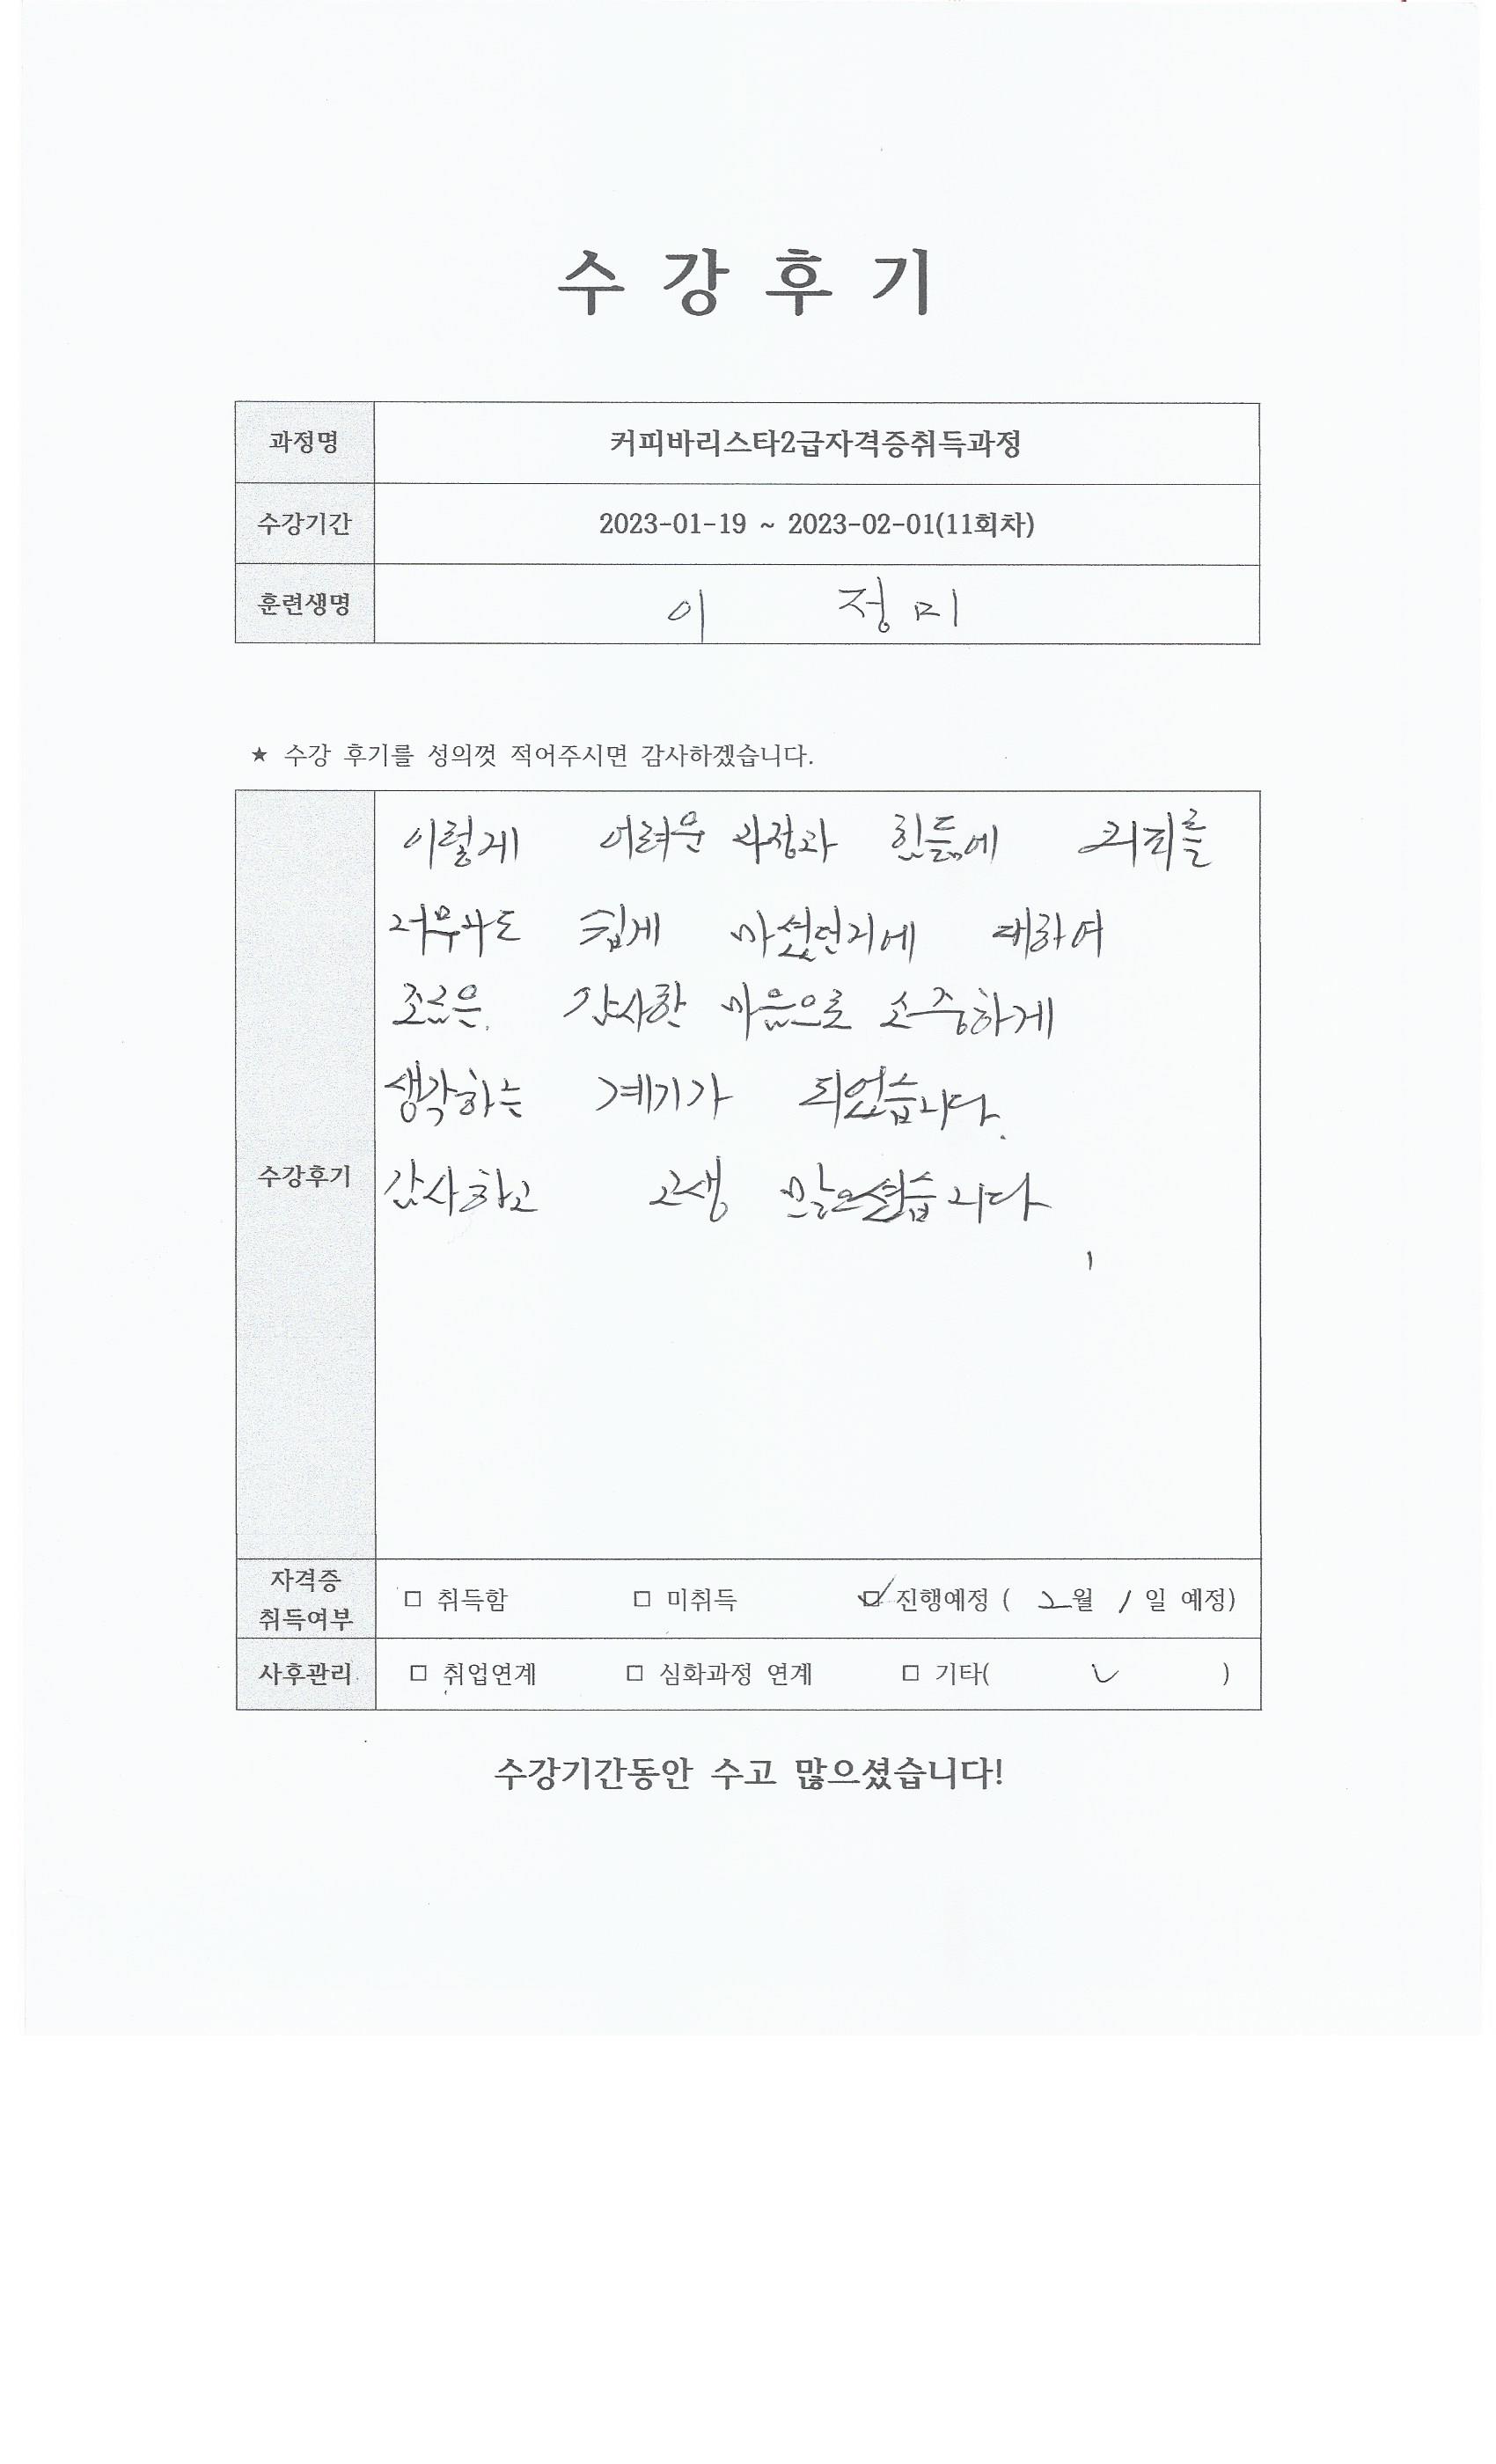 수 강 후 기
과정명 커피바리스타2급자격증취득과정
수강기간 2023-01-19 ~ 2023-02-01(11회차)
훈련생명 이 정미
★ 수강 후기를 성의껏 적어주시면 감사하겠습니다.
수강후기
이렇게 어려운 과정과 힘듦에 커피를
너무나도 쉽게 마셨던거에 대하여
조금은 감사한 마음으로 소중하게
생각하는 계기가 되었습니다.
감사하고 고생 많으셨습니다
자격증 취득여부 □ 취득함 □ 미취득 ☑ 진행예정 ( 2월 1일 예정)
사후관리 □ 취업연계 □ 심화과정 연계 □ 기타( ✓ )
수강기간동안 수고 많으셨습니다!